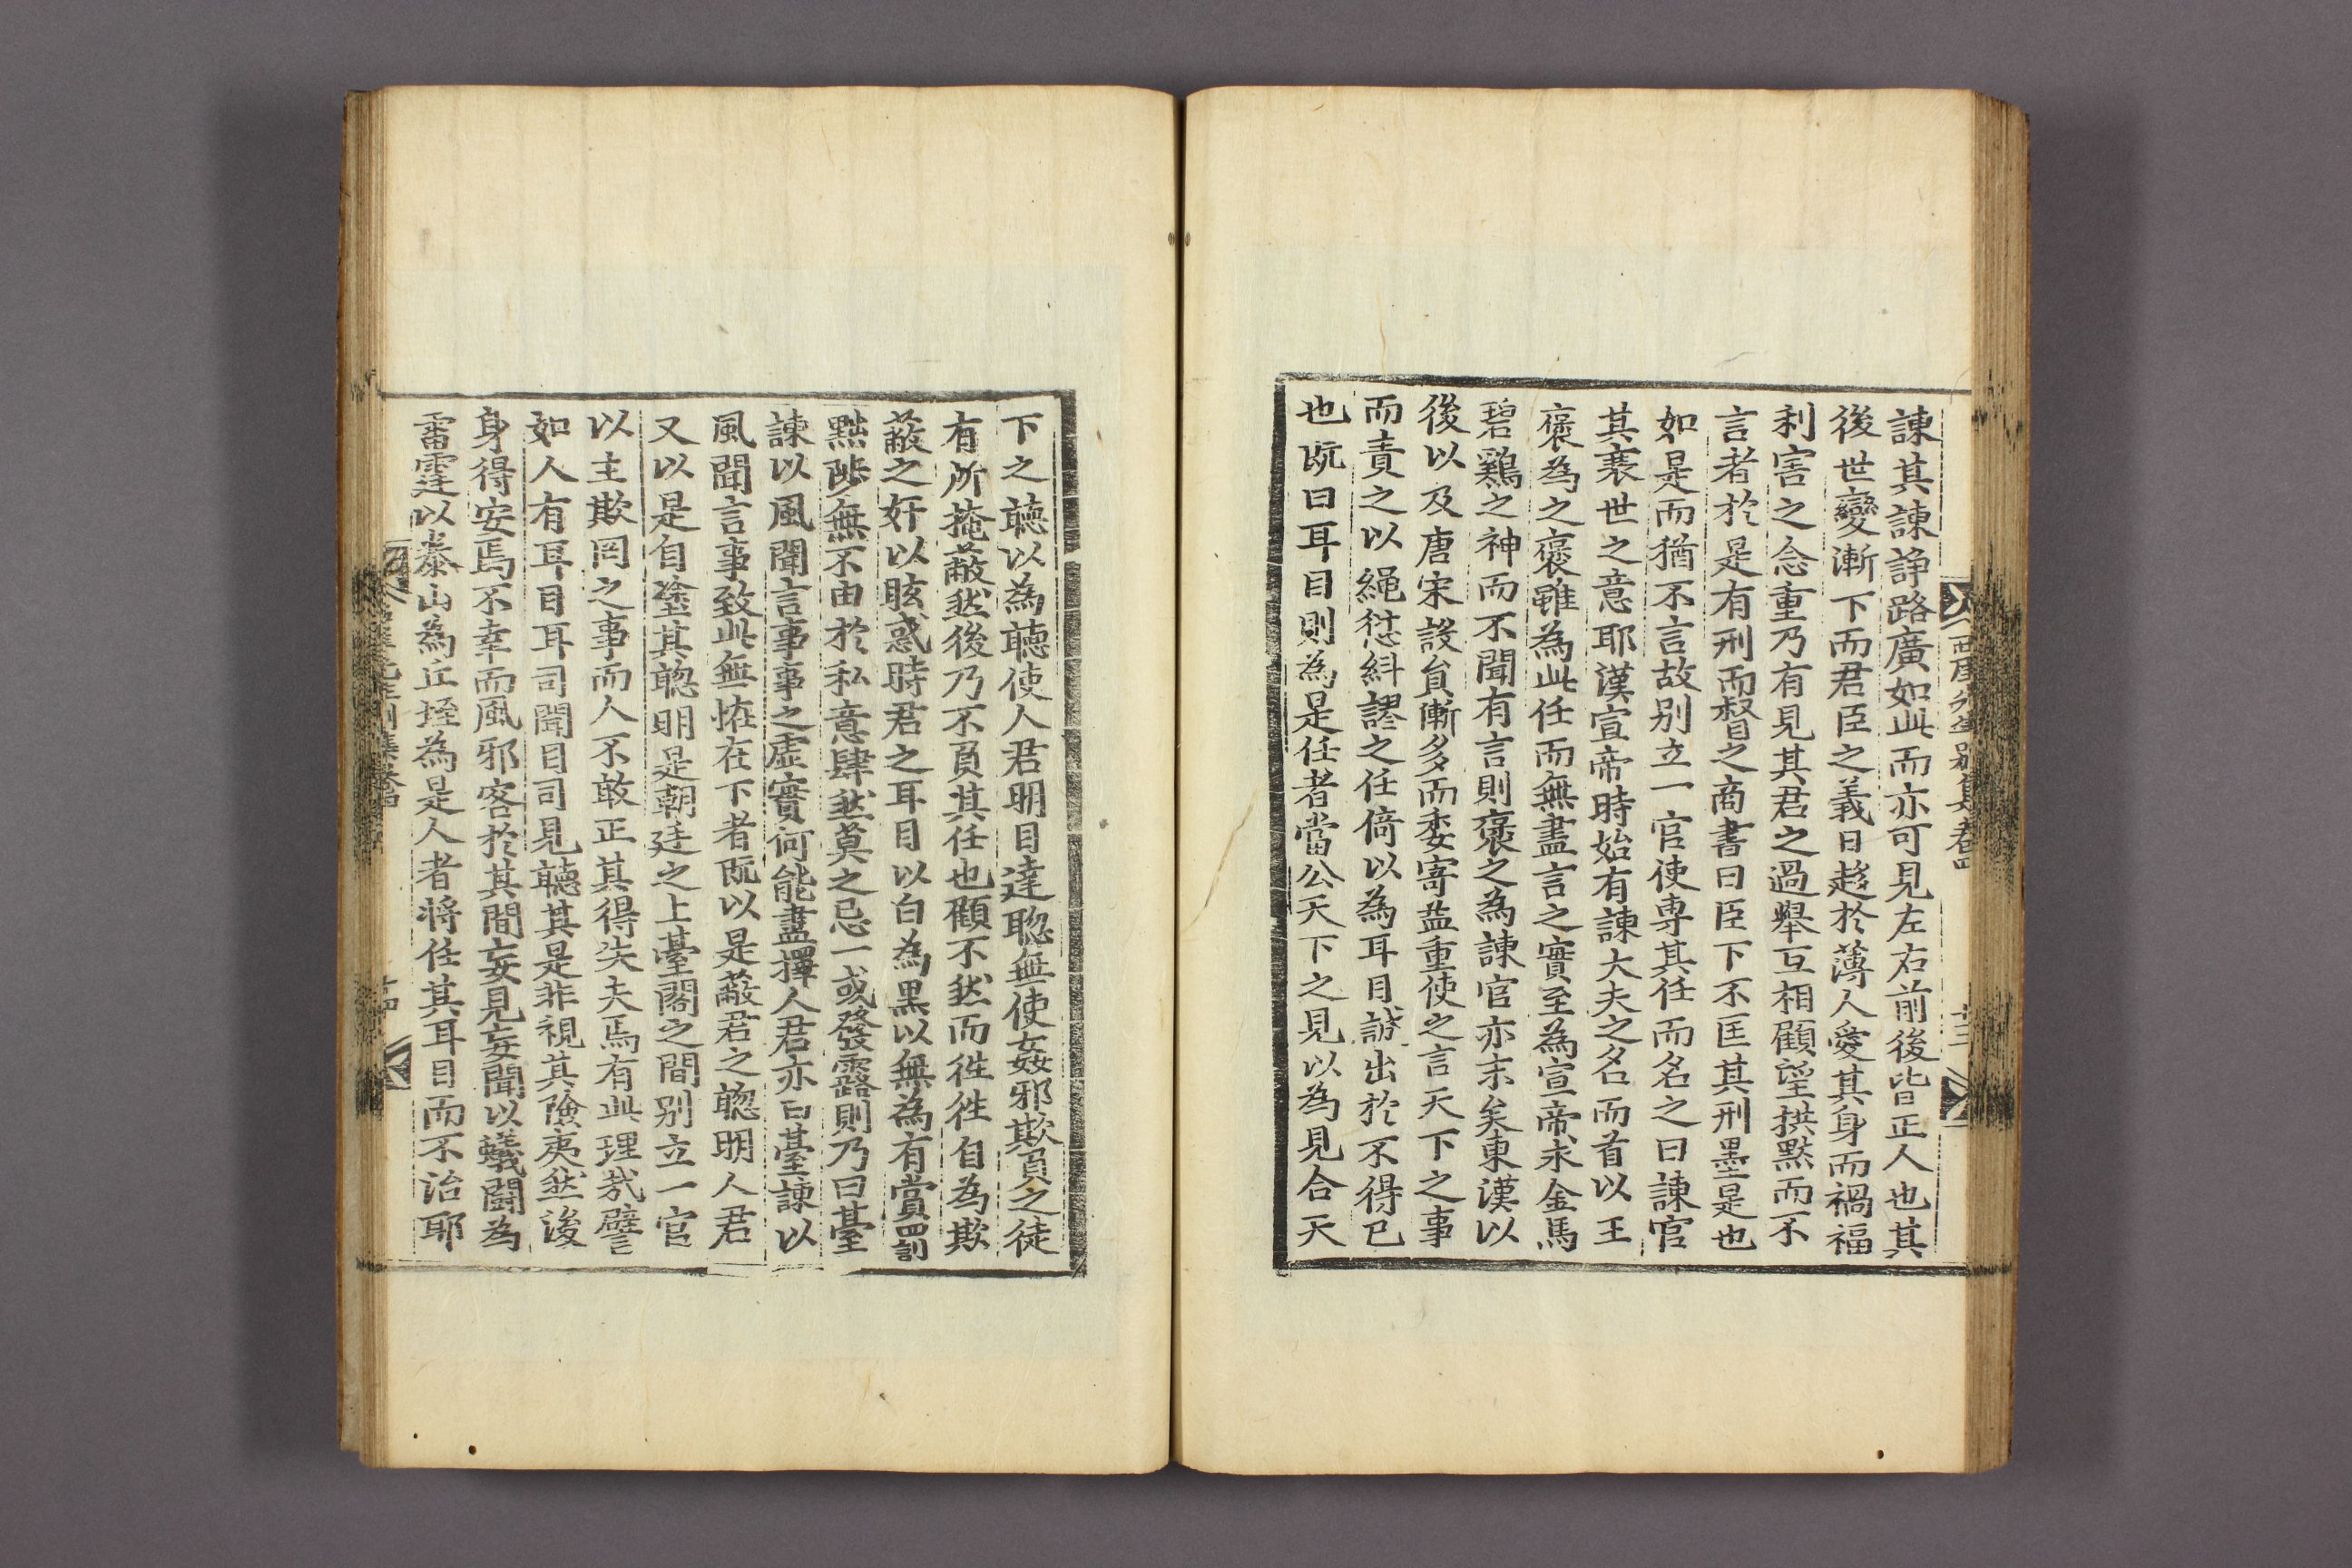 諫其諫諍路廣如此而亦可見左右前後皆正人也其
後世變漸下而君臣之義日趍於薄人愛其身而禍福
利害之念重乃有見其君之過擧互相顧望拱黙而不
言者於是有刑而督之商書曰臣下不匡其刑墨是也
如是而猶不言故別立一官使専其任而名之曰諫官
其衰世之意耶漢宣帝時始有諫大夫之名而首以王
褒為之褒雖為此任而無盡言之實至為宣帝求金馬
碧鷄之神而不聞有言則褒之為諫官亦末矣東漢以
後以及唐宋設貟漸多而委寄益重使之言天下之事
而責之以繩愆糾謬之任倚以為耳目誠出於不得已
也旣曰耳目則為是任者當公天下之見以為見合天
西厓先生別集卷四
十三
下之聽以為聽使人君明目達聦無使姦邪欺負之徒
有所掩蔽然後乃不負其任也顧不然而徃徃自為欺
蔽之奸以眩惑時君之耳目以白為黒以無為有賞罰
黜陟無不由於私意肆然莫之忌一或發露則乃曰臺
諫以風聞言事事之虛實何能盡擇人君亦曰臺諫以
風聞言事致此無恠在下者旣以是蔽君之聦明人君
又以是自塗其聦明是朝廷之上臺閣之間別立一官
以主欺罔之事而人不敢正其得失夫焉有此理㦲譬
如人有耳目耳司聞目司見聽其是非視其險夷然後
身得安焉不幸而風邪客於其間妄見妄聞以蟻鬪為
雷霆以泰山為丘垤為是人者将任其耳目而不治耶
十四